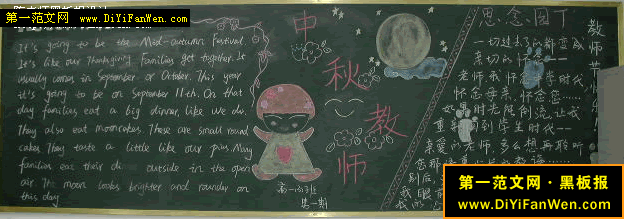 第一范文网
www.DiYiFanWen.com
It's going to be the Mid-autumn festival.
It's like our Thanksgiving. Families get together. It
usually comes in September or October. This year
it's going to be on September 11th. On that
day families eat a big dinner, like we do.
They also eat mooncakes. These are small round
cakes. They taste a little like our pies. May
families eat their di outside in the open
air. The moon looks brighter and rounder on
this day.
中秋教师
高一
第一期
思念园丁
教师节
一切过去了的都变成
亲切的怀念
老师我怀念学生时代
怀念母亲,怀念您
如果时光能倒流,让我
重新回到学生时代
亲爱的老师,多么想再聆听
第一范文网·黑板报
www.DiYiFanWen.com